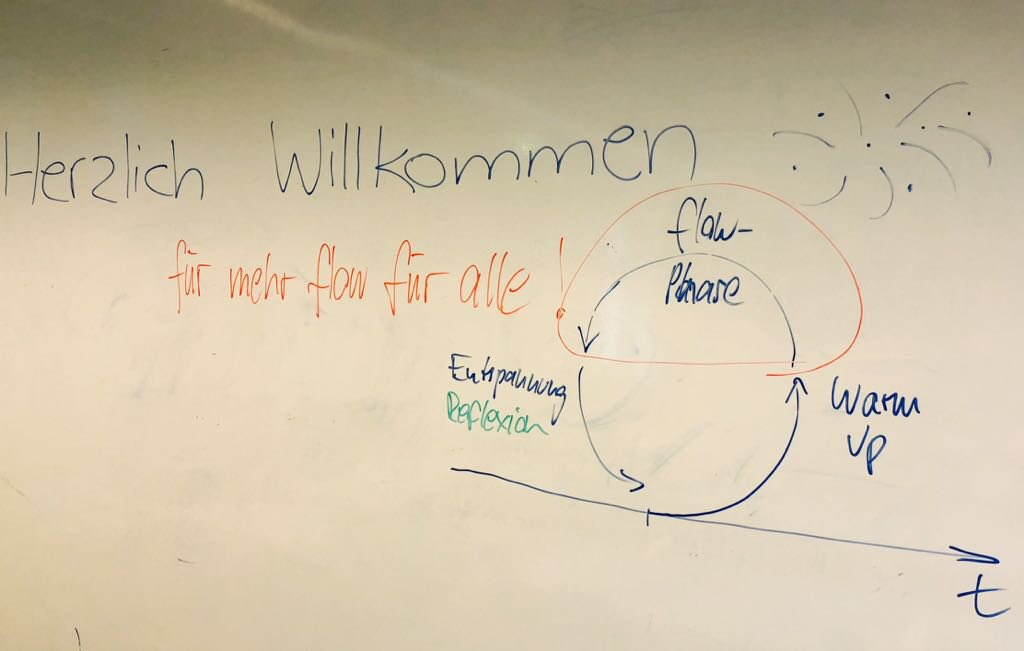 Herzlich Willkommen
für mehr flow für alle!
flow-
Phase
Entspannung
Reflexion
Warm
Up
t